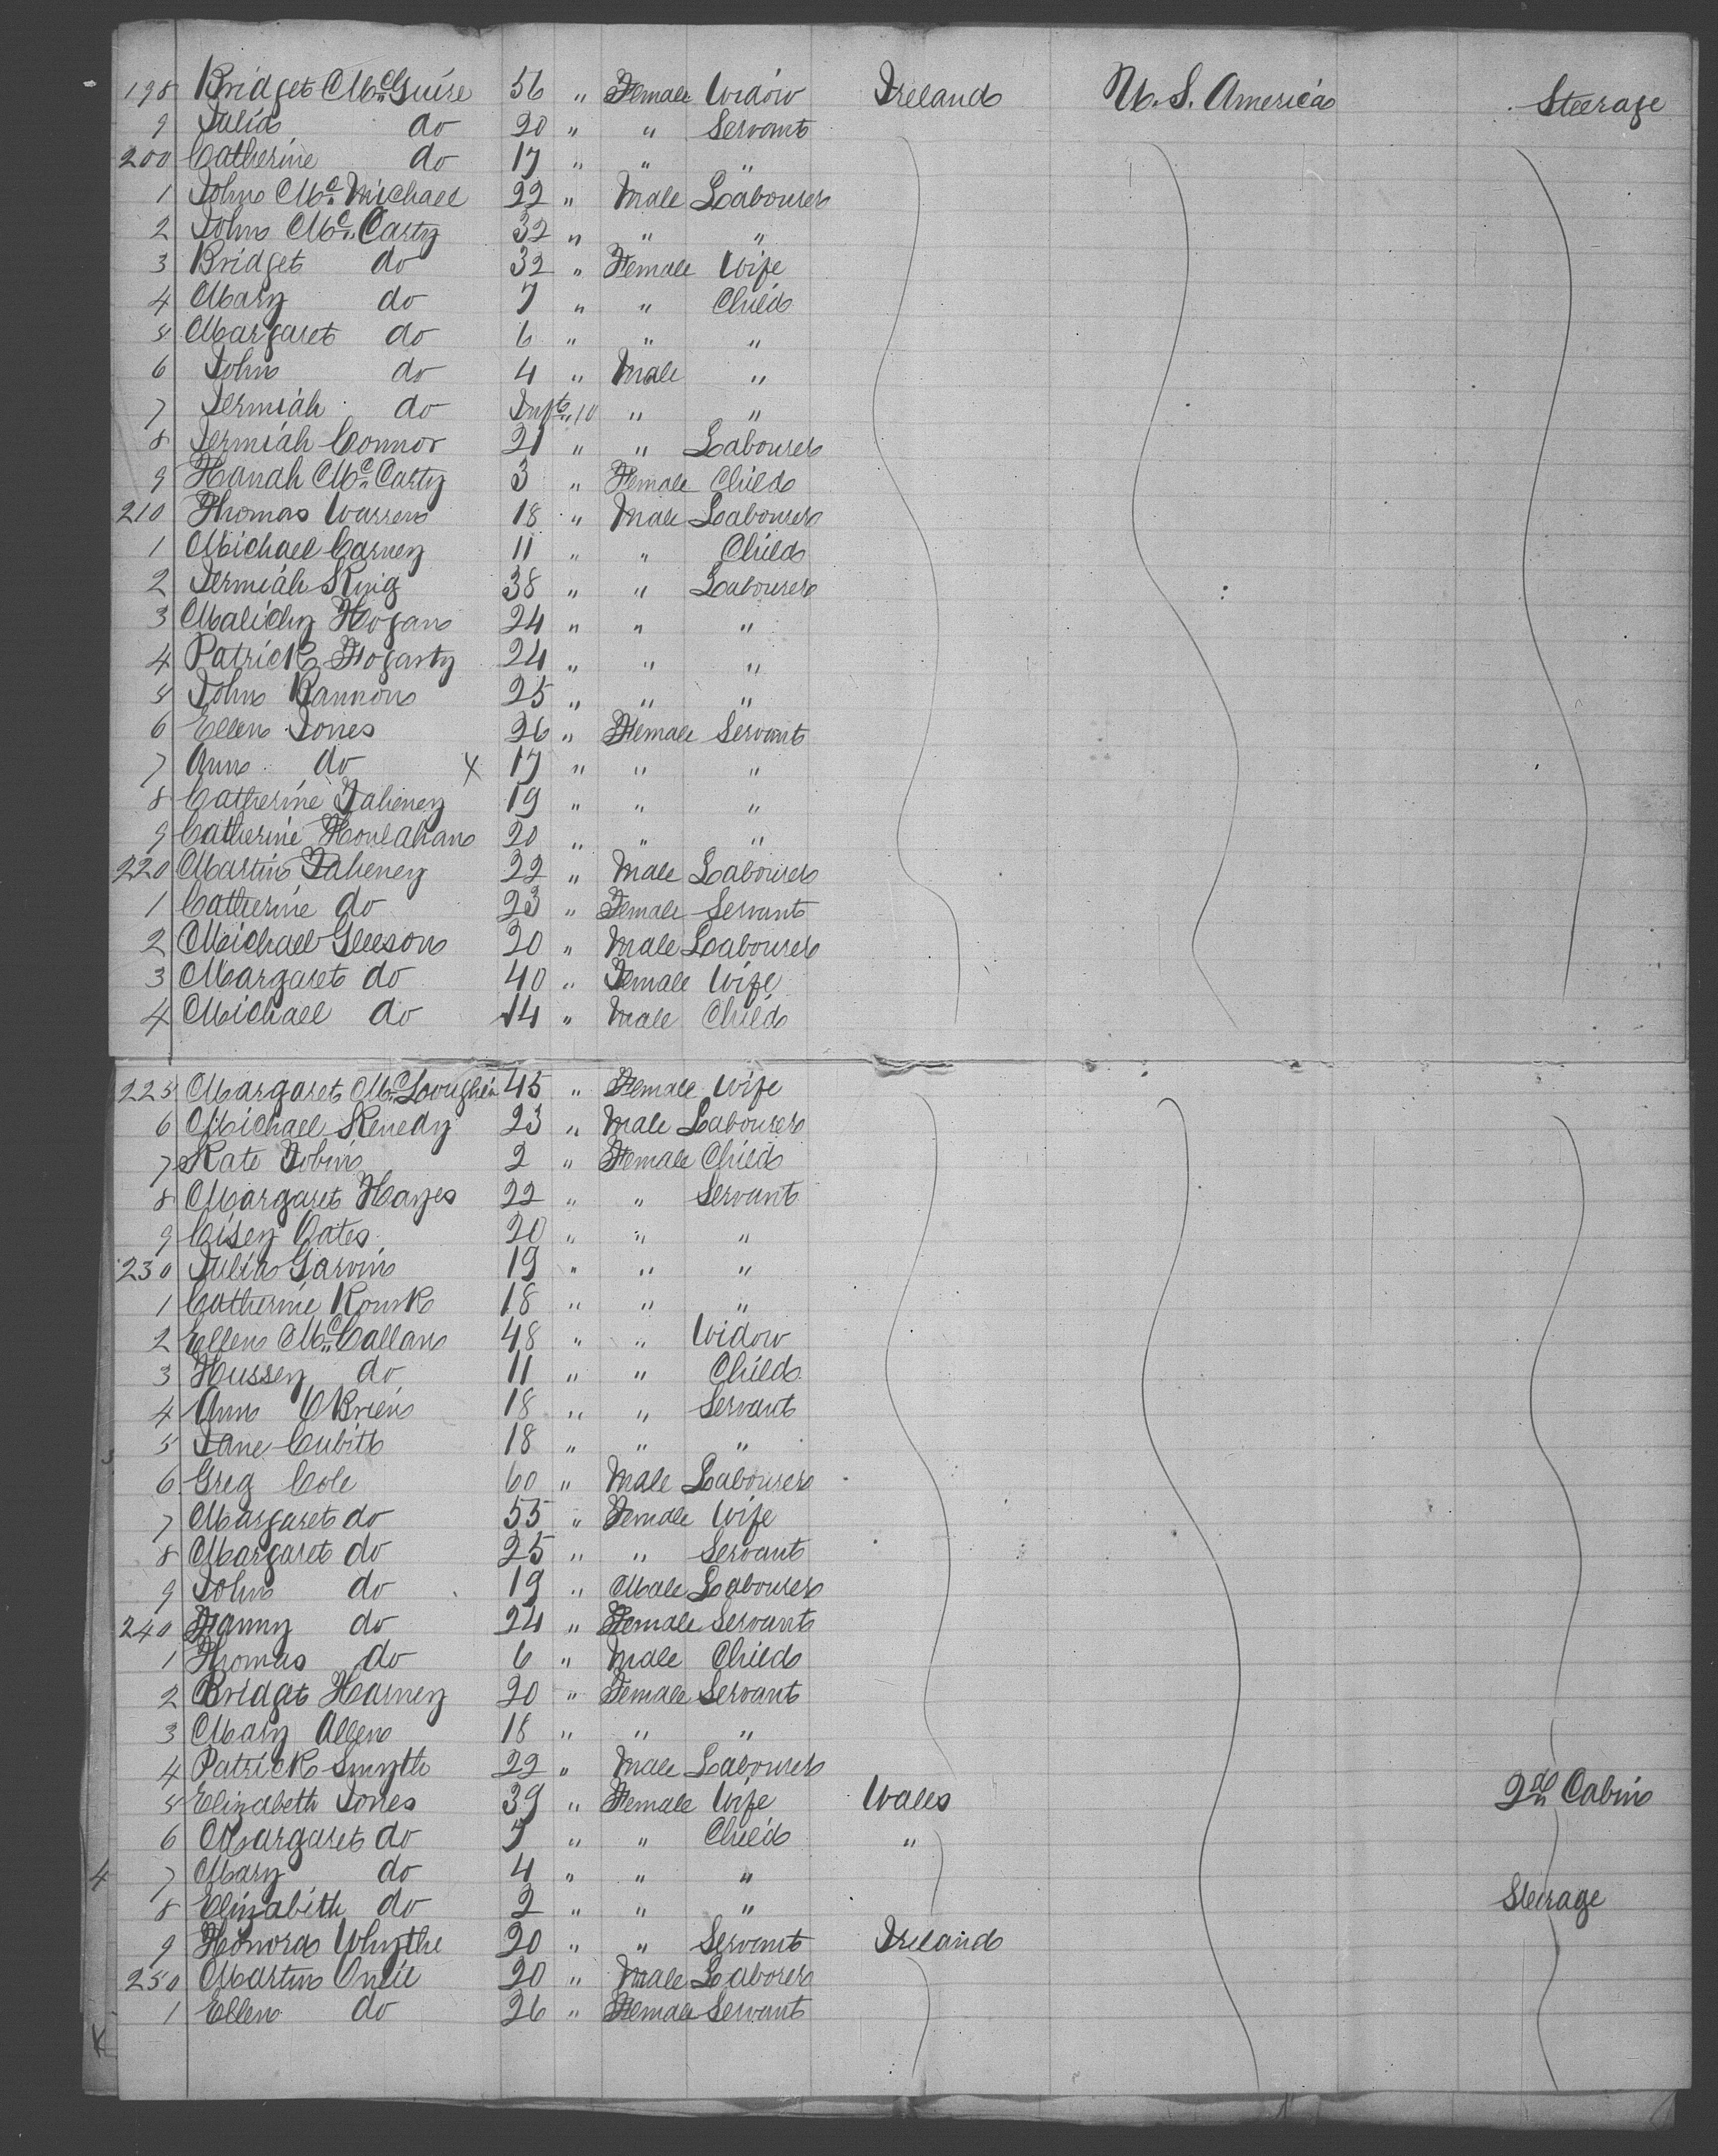 198 Bridget McGuire 56 " Female Widow Ireland U.S. America Steerage
9 Julia do 20 " " Servant
200 Catherine do 17 " " "
1 John McMichael 22 " Male Labourer
2 John McCarty 32 " " "
3 Bridget do 32 " Female Wife
4 Mary do 7 " " Child
5 Margaret do 6 " " "
6 John do 4 " Male "
7 Jermiah do Inft " 10 " "
8 Jermiah Connor 21 " " Labourer
9 Hanah McCarty 3 " Female Child
210 Thomas Warren 18 " Male Labourer
1 Michael Carney 11 " " Child
2 Jermiah King 38 " " Labourer
3 Malichy Hogan 24 " " "
4 Patrick Fogarty 24 " " "
5 John Bannon 25 " " "
6 Ellen Jones 26 " Female Servant
7 Ann do X 17 " " "
8 Catherine Faheney 19 " " "
9 Catherine Houlahan 20 " " "
220 Martin Faheney 22 " Male Labourer
1 Catherine do 23 " Female Servant
2 Michael Gleeson 20 " Male Labourer
3 Margaret do 40 " Female Wife
4 Michael do 14 " Male Child
225 Margaret McLoughlin 45 " Female Wife
6 Michael Kenedy 23 " Male Labourer
7 Kate Tobin 2 " Female Child
8 Margaret Hayes 22 " " Servant
9 Cisey Oates 20 " " "
230 Julia Garvin 19 " " "
1 Catherine Rourk 18 " " "
2 Ellen McCallan 48 " " Widow
3 Hussey do 11 " " Child
4 Ann OBrien 18 " " Servant
5 Jane Cubitt 18 " " "
6 Greg Cole 60 " Male Labourer
7 Margaret do 55 " Female Wife
8 Margaret do 25 " " Servant
9 John do 19 " Male Labourer
240 Fanny do 24 " Female Servant
1 Thomas do 6 " Male Child
2 Bridget Harney 20 " Female Servant
3 Mary Allen 18 " " "
4 Patrick Smyth 22 " Male Labourer
5 Elizabeth Jones 39 " Female Wife Wales 2nd Cabin
6 Margaret do 7 " " Child "
4 7 Mary do 4 " " "
8 Elizabeth do 2 " " " Steerage
9 Honora Whythe 20 " " Servant Ireland
250 Martin Oneil 20 " Male Laborer
1 Ellen do 26 " Female Servant
X